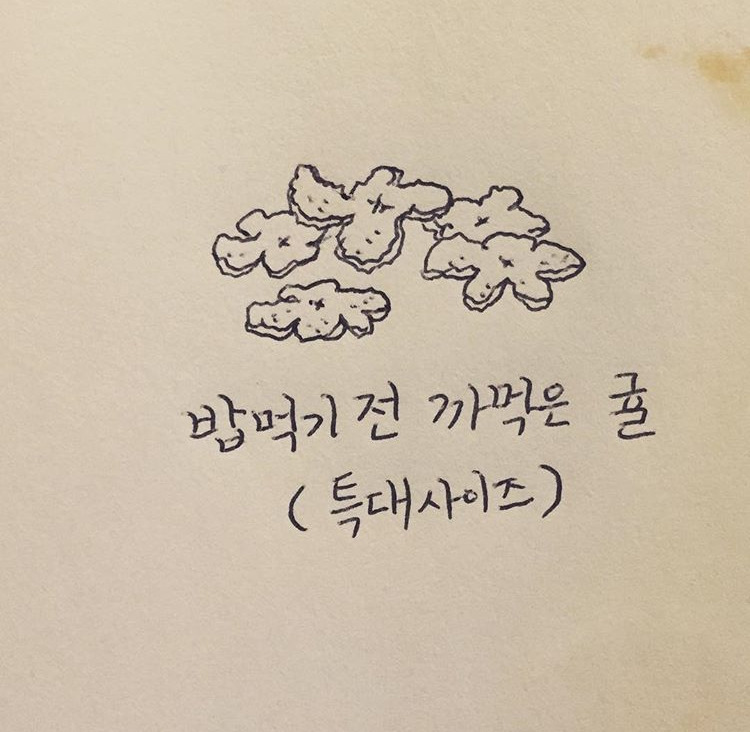 밥먹기전 까먹은 귤
(특대사이즈)